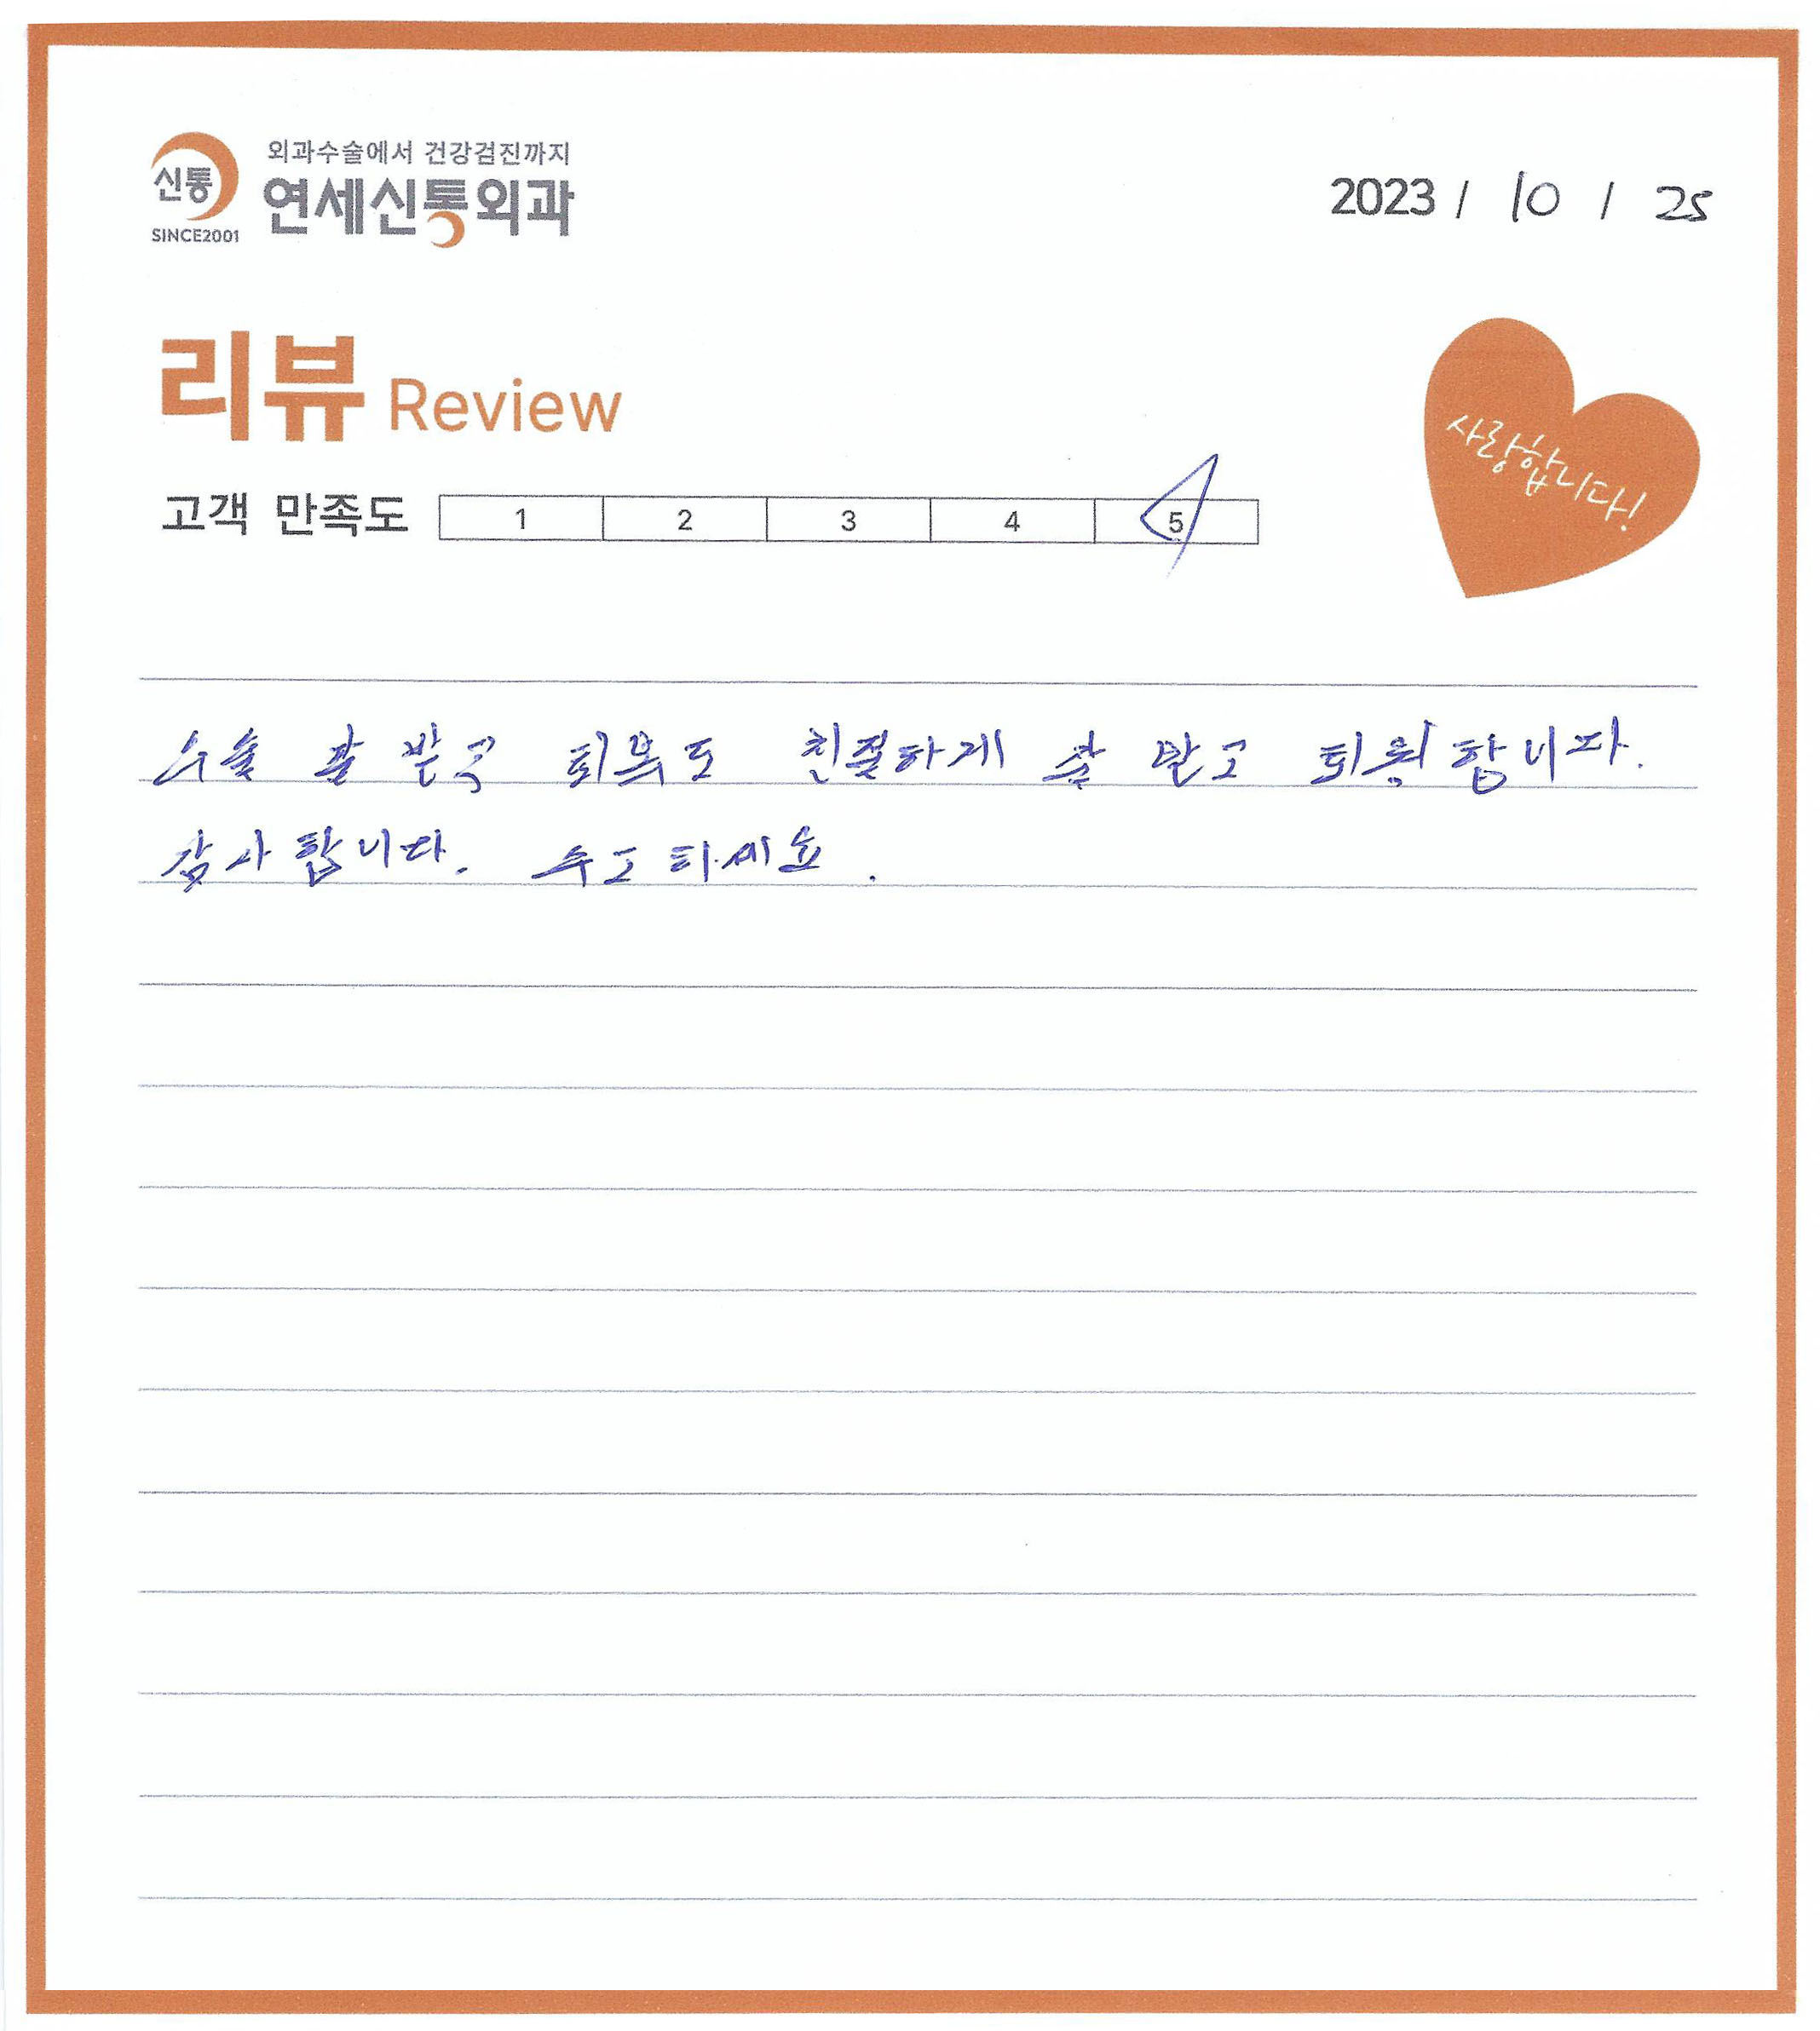 신통
SINCE2001
외과수술에서 건강검진까지
연세신통외과
2023 / 10 / 25
리뷰 Review
사랑합니다!
고객 만족도 1 2 3 4 5
수술 잘 받고 친절하게 잘 받고 퇴원합니다.
감사합니다. 수고하세요.